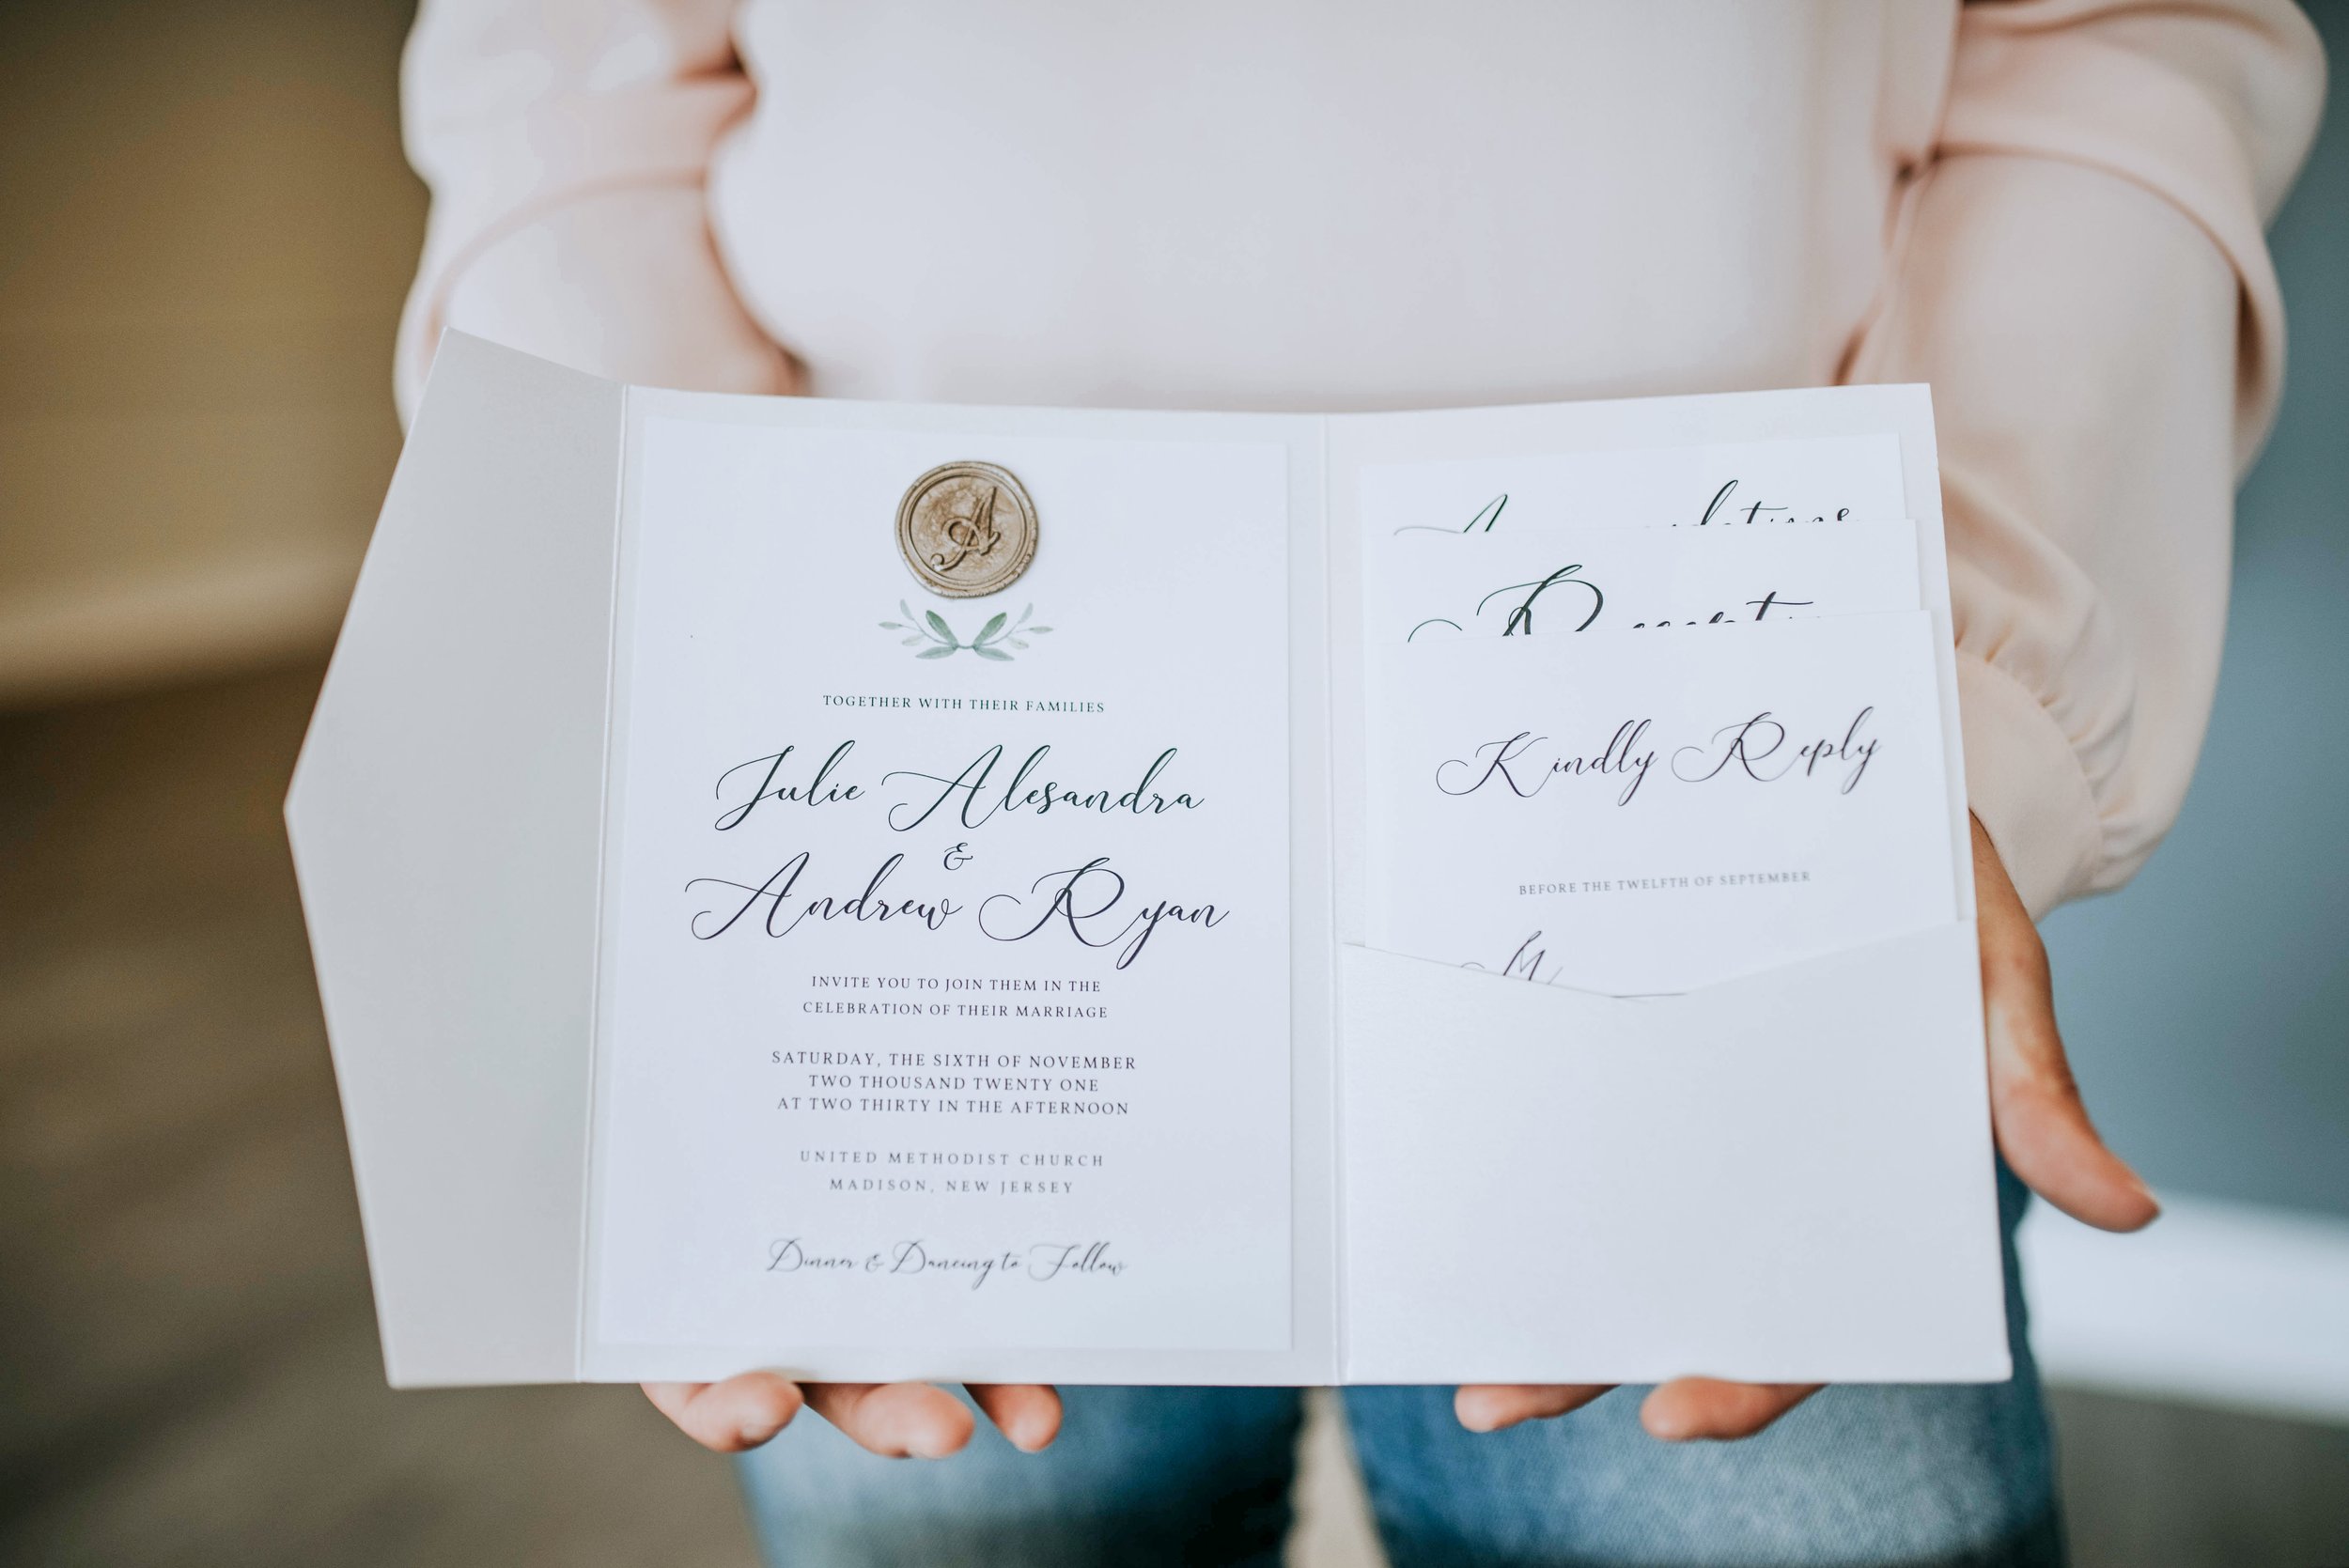 A
TOGETHER WITH THEIR FAMILIES
Julie Alesandra
&
Andrew Ryan
INVITE YOU TO JOIN THEM IN THE
CELEBRATION OF THEIR MARRIAGE
SATURDAY, THE SIXTH OF NOVEMBER
TWO THOUSAND TWENTY ONE
AT TWO THIRTY IN THE AFTERNOON
UNITED METHODIST CHURCH
MADISON, NEW JERSEY
Dinner & Dancing to Follow
Kindly Reply
BEFORE THE TWELFTH OF SEPTEMBER
M